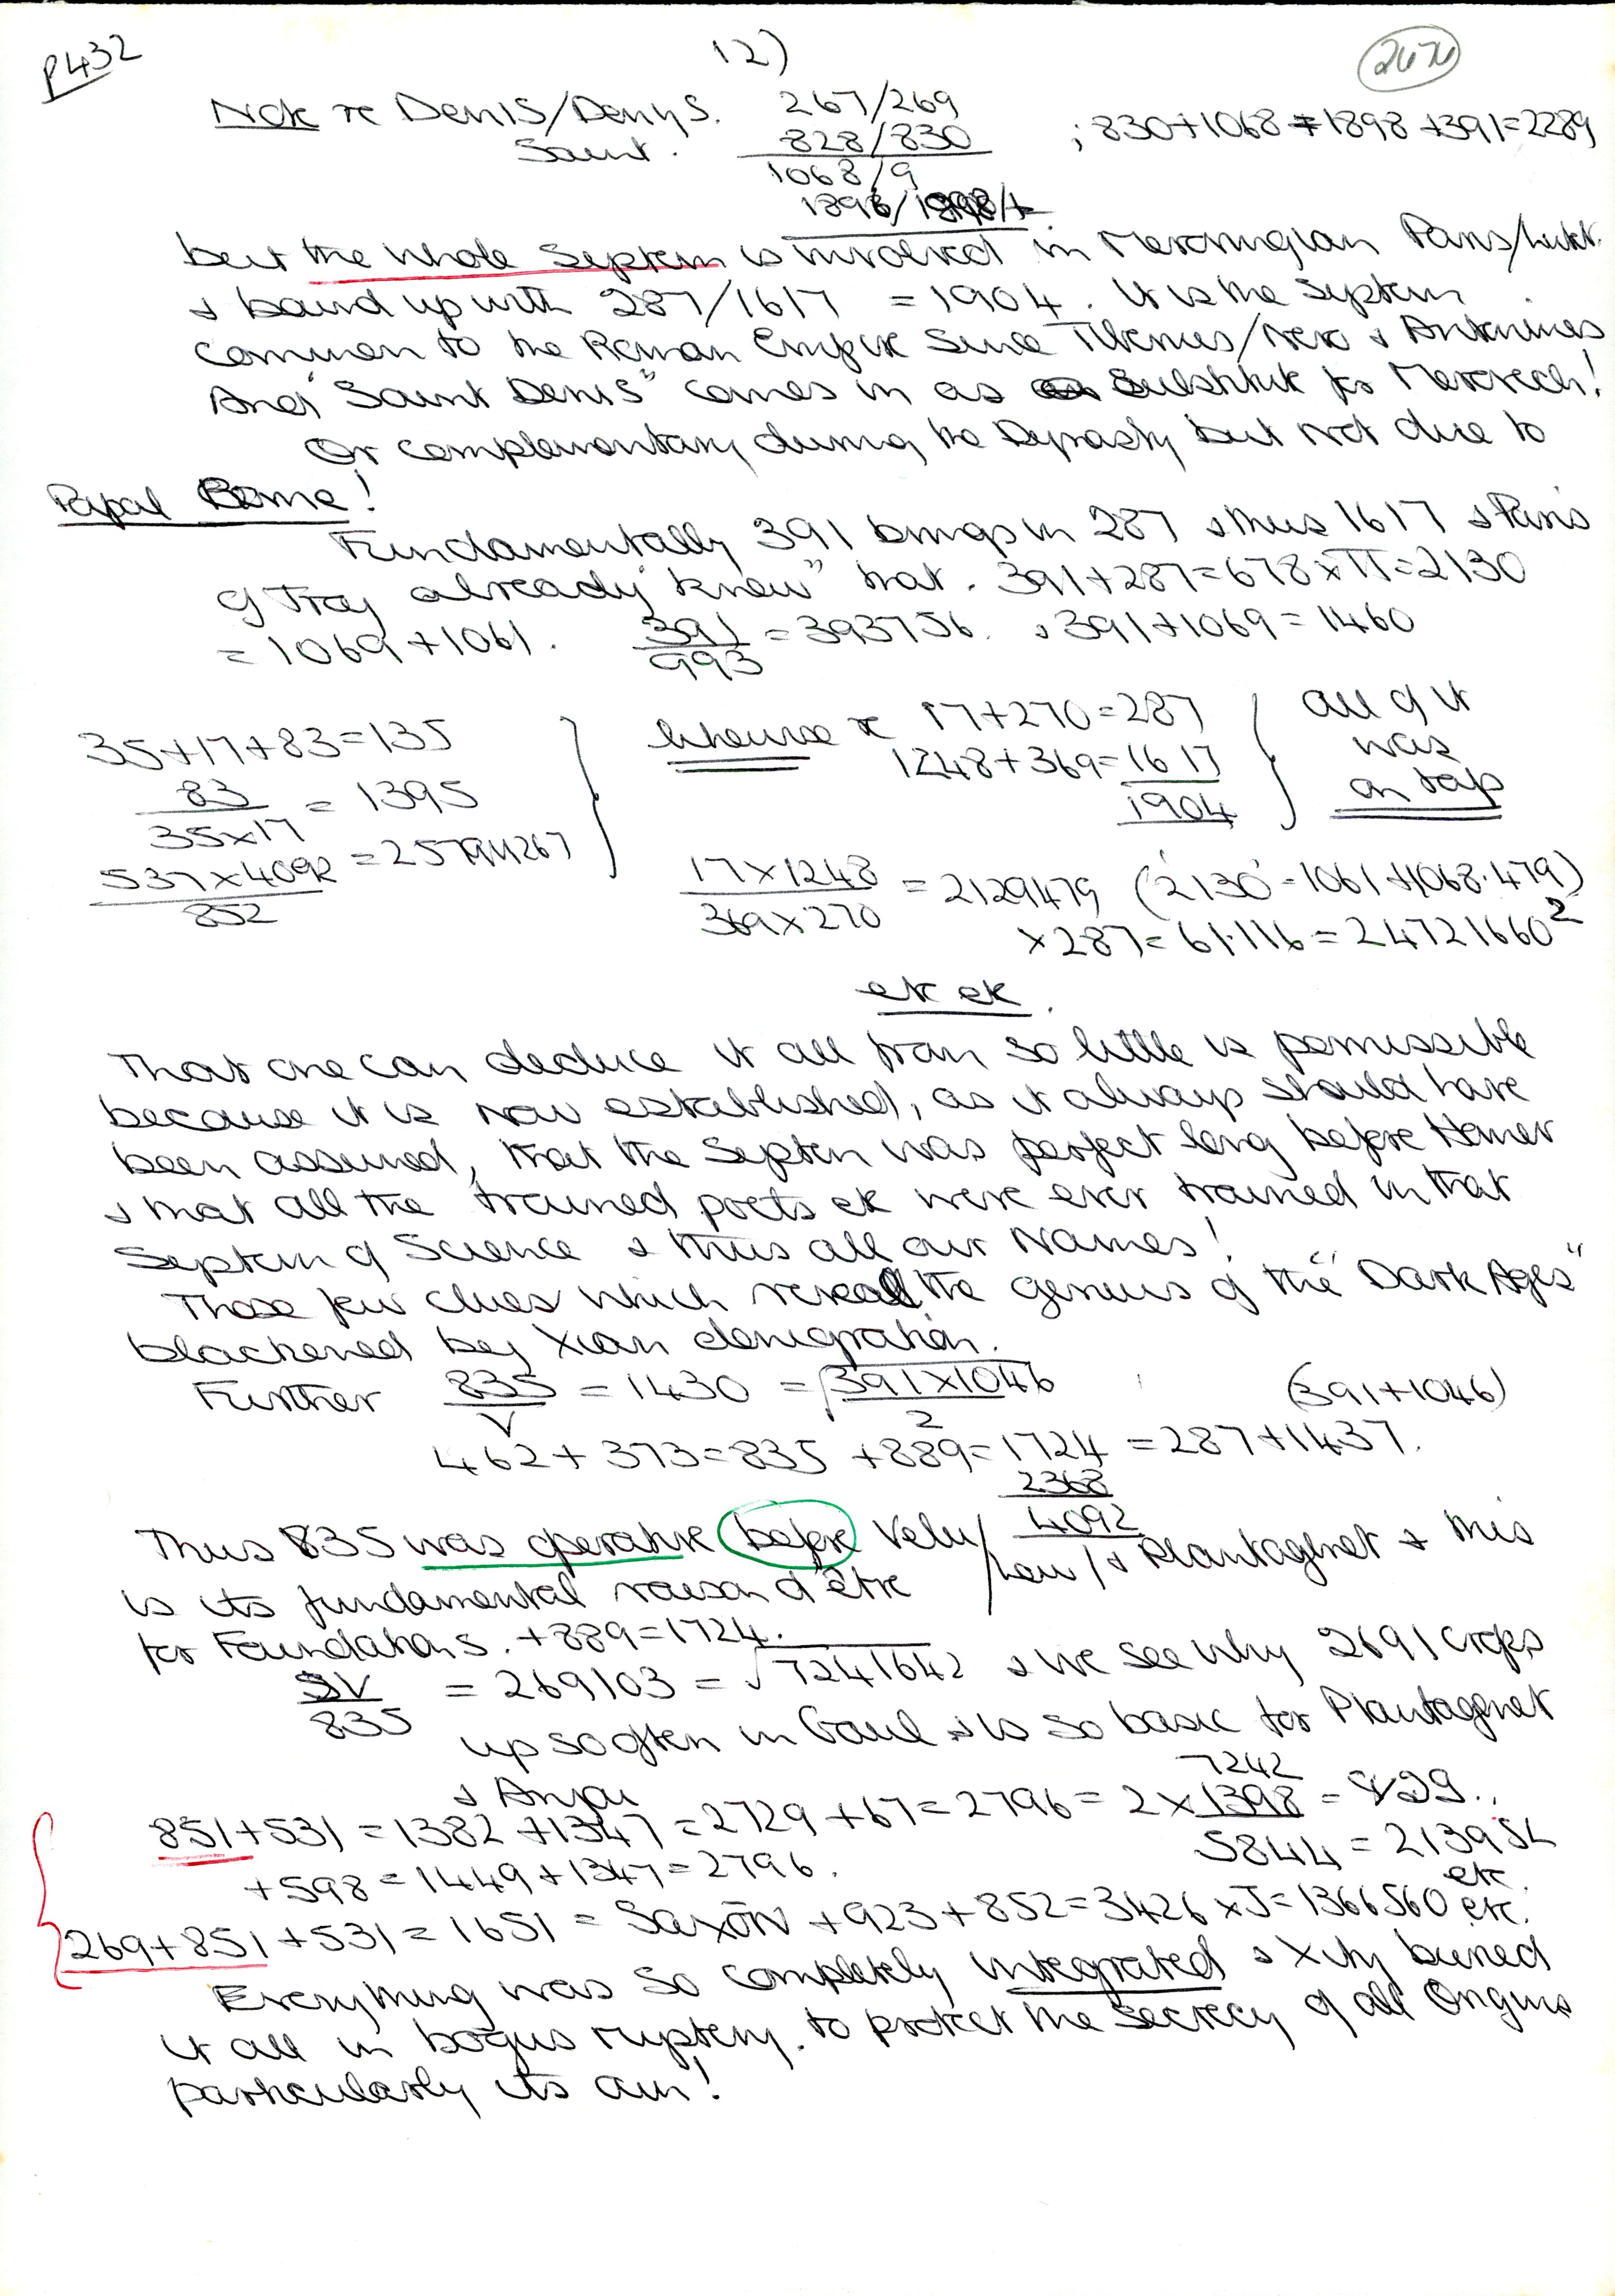 P432
12)
Note re Denis/Denys. 267/269
Saint. 828/830 ; 830+1068 = 1898 +391=2289
1068/9
1896/1898/
but the whole System is involved in Merovingian Paris/
& bound up with 287/1617 = 1904. It is the System
common to the Roman Empire since Tiberius/Nero & Antonines
And "Saint Denis" comes in as Substitute for Merovech!
Or complementary during the Dynasty but not due to
Papal Rome!
Fundamentally 391 brings in 287 & thus 1617 & Paris
of Troy already "knew" that. 391+287=678×π=2130
= 1069+1061. 391/993 = 393756. & 391+1069=1460
35+17+83=135
83/35×17 = 1395
537×4092/852 = 25791267
likewise re 17+270=287
1248+369=1617
1904
all of it
was
on tap
17×1248/369×270 = 2129479 ('2130'-1061+1068.479)
×287=61.116=24721660²
etc etc.
That one can deduce it all from so little is permissible
because it is now established, as it always should have
been assumed, that the System was perfect long before Homer
& that all the trained poets etc were ever trained in that
System of Science & thus all our Names!
Those few clues which reveal the genius of the "Dark Ages"
blackened by Xian denigration.
Further 835/V = 1430 = √391×1046/2 (391+1046)
462+373=835 +889=1724 =287+1437.
2368
4092
Thus 835 was operative before Velu/Leu/& Plantagenet & this
is its fundamental raison d'être
for Foundations. +889=1724.
SV/835 = 269103 = √7241642 & we see why 2691 crops
up so often in Gaul & is so basic for Plantagenet
& Anjou
851+531=1382+1347=2729+67=2796=2×1398 = 829..
7242
5844 = 213954
etc.
+598=1449+1347=2796.
269+851+531=1651 = SaxōN +923+852=3426×J=1366560 etc.
Everything was so completely integrated & Xity buried
it all in bogus mystery. to protect the secrecy of all Origins
particularly its own!